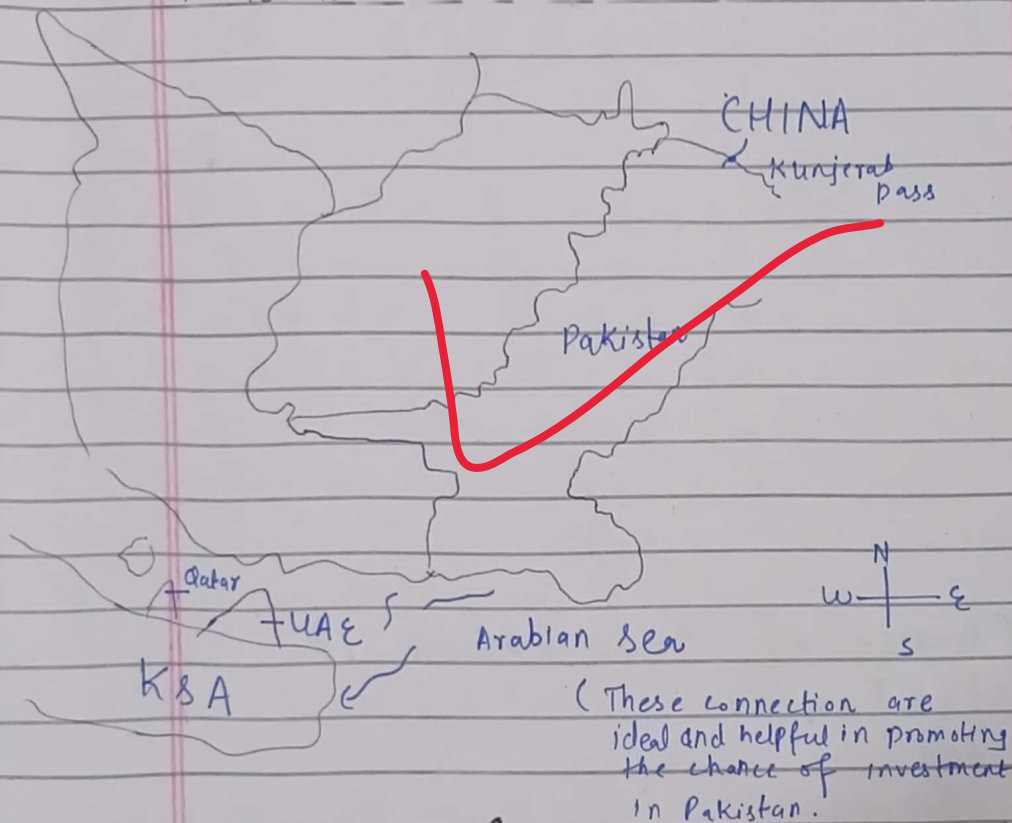 CHINA
Kunjerab
Pass
Pakistan
N
W
E
S
Qatar
UAE
Arabian sea
KSA
( These connection are
ideal and helpful in promoting
the chance of investment
in Pakistan.